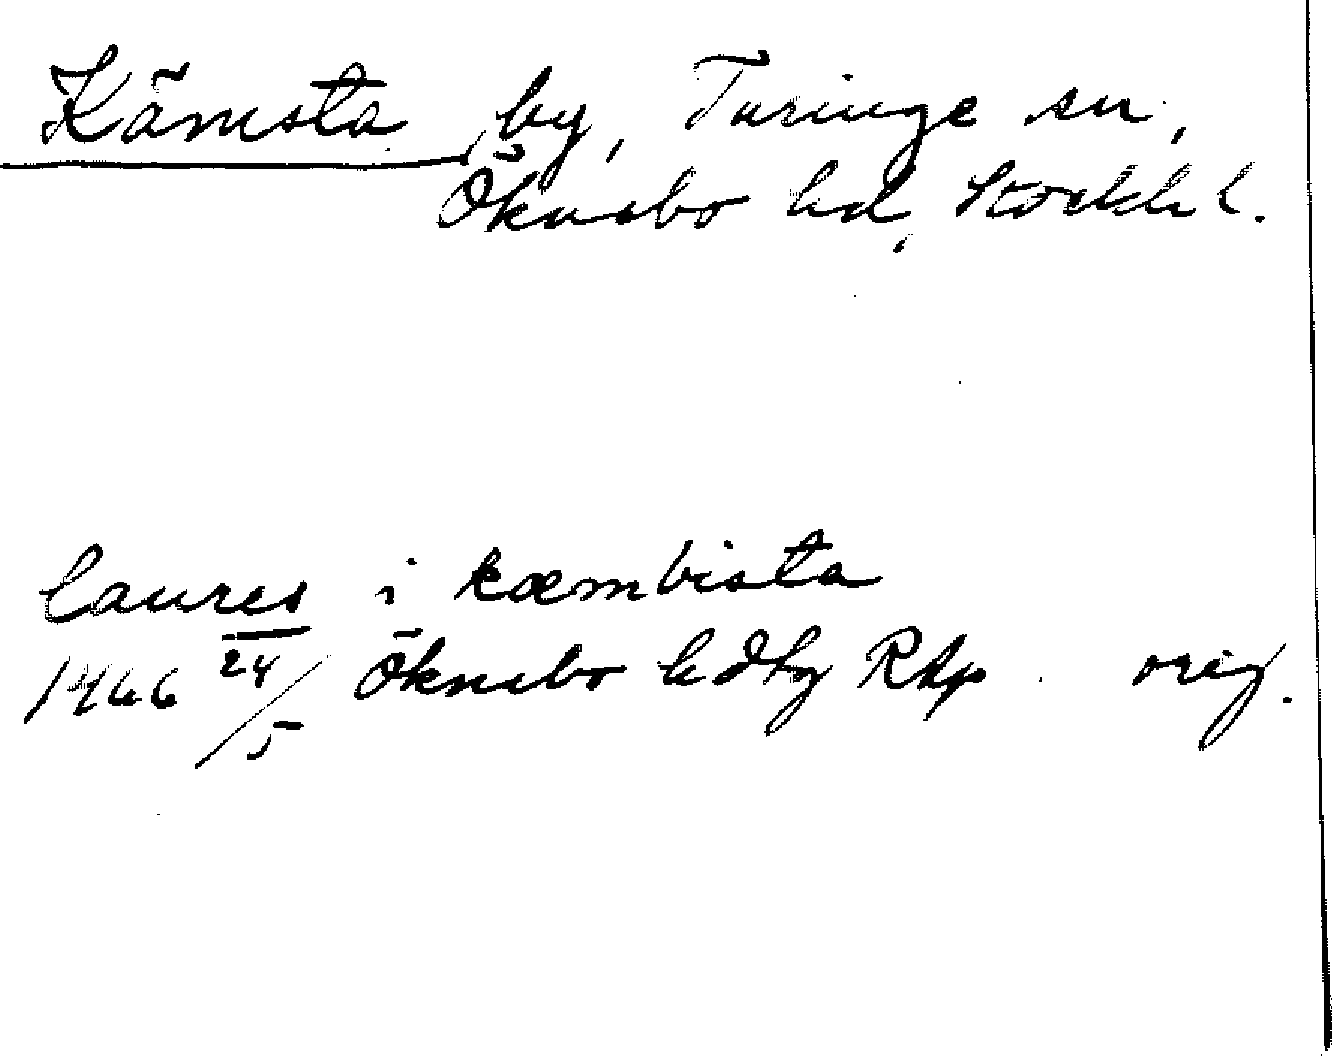 Kämsta by, Turinge sn,
Öknebo hd, Stockh l.
laures i kæmbista
1466 24/5 Öknebo hdtg Rap orig.